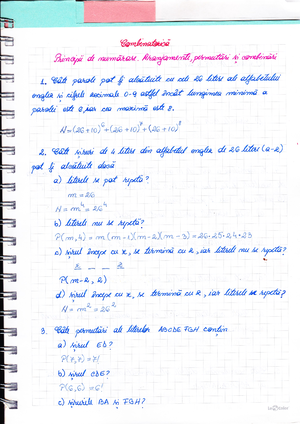 Combinatorică
Principii de numărare. Aranjamente, permutări și combinări
1. Câte parole pot fi alcătuite cu cele 26 litere ale alfabetului
englez și cifrele zecimale 0-9 astfel încât lungimea minimă a
parolei este 6, iar cea maximă este 8.
N = (26+10)⁶ + (26+10)⁷ + (26+10)⁸
2. Câte șiruri de 4 litere din alfabetul englez de 26 litere (a-z)
pot fi alcătuite dacă
a) literele se pot repeta?
m = 26
N = m⁴ = 26⁴
b) literele nu se repetă?
P(m,4) = m(m-1)(m-2)(m-3) = 26·25·24·23
c) șirul începe cu x, se termină cu z, iar literele nu se repetă?
x _ _ z
P(m-2, 2)
d) șirul începe cu x, se termină cu z, iar literele se repetă?
N = m² = 26²
3. Câte permutări ale literelor ABCDEFGH conțin
a) șirul ED?
P(7,7) = 7!
b) șirul CDE?
P(6,6) = 6!
c) șirurile BA și FGH?